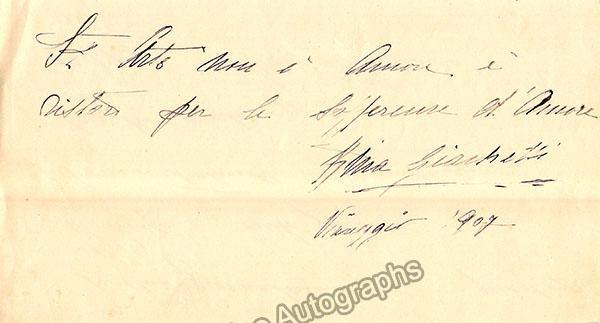 L'Arte non è Amore è
ristoro per le sofferenze d'Amore
Rina Giachetti
Viareggio 1907
Autographs